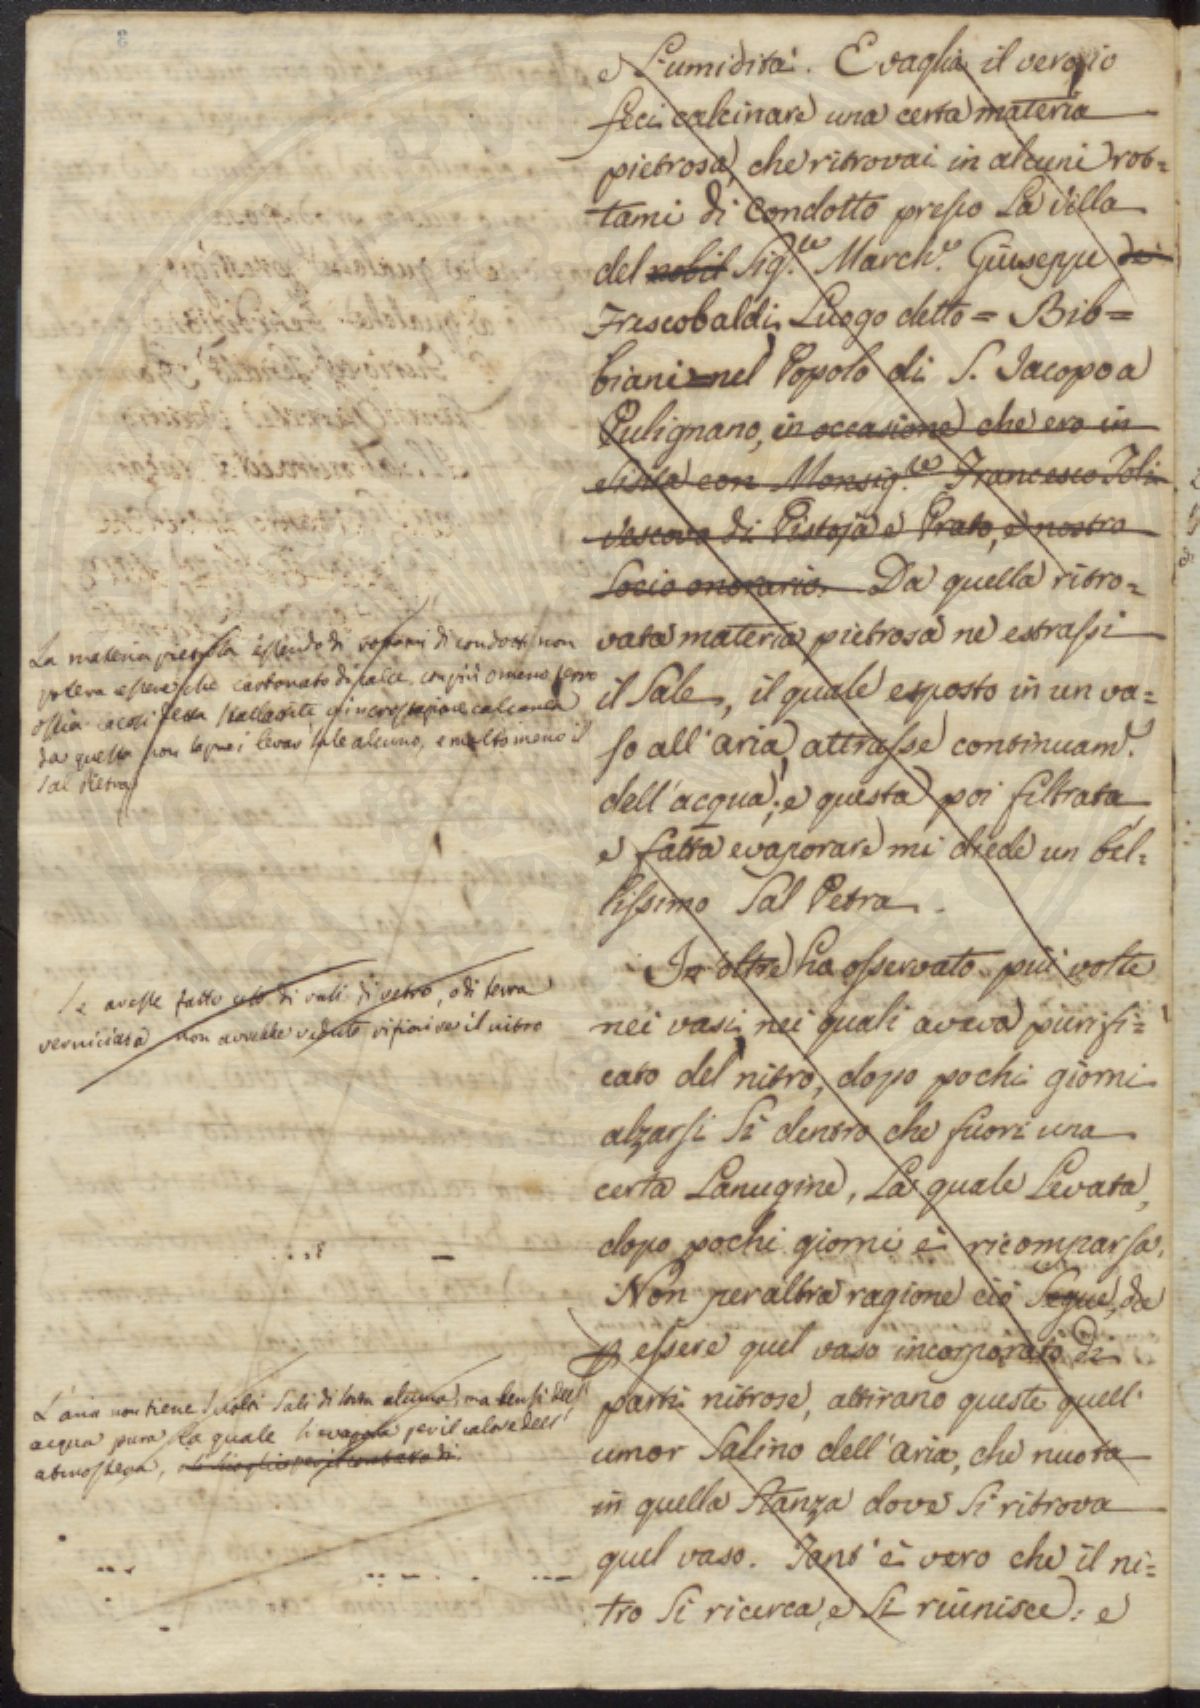 e l'umidità. E vaglia il vero, io
feci calcinare una certa materia
pietrosa, che ritrovai in alcuni rot=
tami di Condotto presso la Villa
del nobil Sig.re March.e Giuseppe de
Frescobaldi Luogo detto = Bib=
biani = nel Popolo di S. Jacopo a
Pulignano, in occasione che ero in
visita con Monsig.re Francesco Toli
Vescovo di Pistoja e Prato, e nostro
Socio onorario. Da quella ritro=
vata materia pietrosa ne estrassi
il Sale, il quale esposto in un va=
so all'aria, attrasse continuam.e
dell'acqua; e questa poi filtrata
e fatta evaporare mi diede un bel=
lissimo Sal Petra.
In oltre ho osservato più volte
nei vasi nei quali aveva purifi=
cato del nitro, dopo pochi giorni
alzarsi sì dentro che fuori una
certa Lanugine, la quale levata,
dopo pochi giorni è ricomparsa.
Non per altra ragione ciò segue, da
p essere quel vaso incorporato di
parti nitrose, attirano queste quell'
umor Salino dell'aria, che nuota
in quella Stanza dove si ritrova
quel vaso. Tant'è vero che il ni=
tro si ricerca, e si riunisce: e
La materia pietrosa essendo di rottami di condotti non
poteva essere che carbonato di calce con più o meno ferro
ossia stallattite o incrostazione calcarea
da questa non si può levar sale alcuno, e molto meno il
Sal Pietra
Se avesse fatto uso di vasi di vetro, o di terra
verniciata non avrebbe veduto rifiorire il nitro
L'aria non tiene sciolti Sali di sorta alcuna, ma bensì dell'
acqua pura la quale si evapora per il calore dell'
atmosfera,